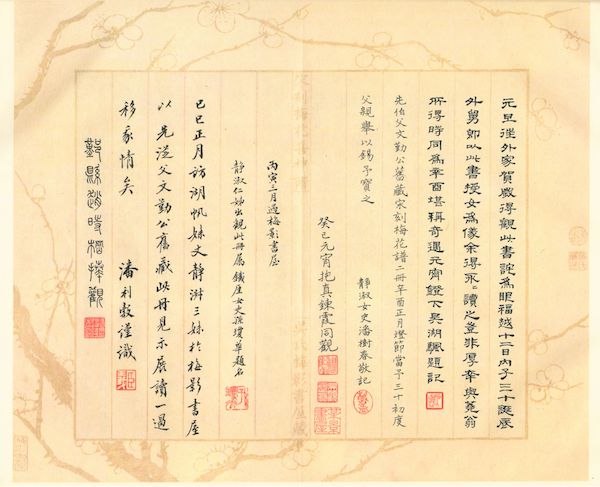 元旦往外家賀歲得觀此書詫為眼福越十二日內子三十誕辰
外舅卽以此書授女為儀余得永〻讀之豈非厚幸與蕘翁
所得時同為辛酉堪稱奇遇元宵鐙下吳湖颿題記
先伯父文勤公舊藏宋刻梅花譜二冊辛酉正月燈節當予三十初度
父親舉以錫予寶之
靜淑女史潘樹春敬記
癸巳元宵抱真鍊霞同觀
丙寅三月過梅影書屋
靜淑仁姊出觀此冊屬鐵崖女史孫瓊華題名
己巳正月訪湖帆妹丈靜淑三妹於梅影書屋
以先從父文勤公舊藏此冊見示展讀一過
移我情矣 潘利穀謹識
鄞縣趙時棡捧觀